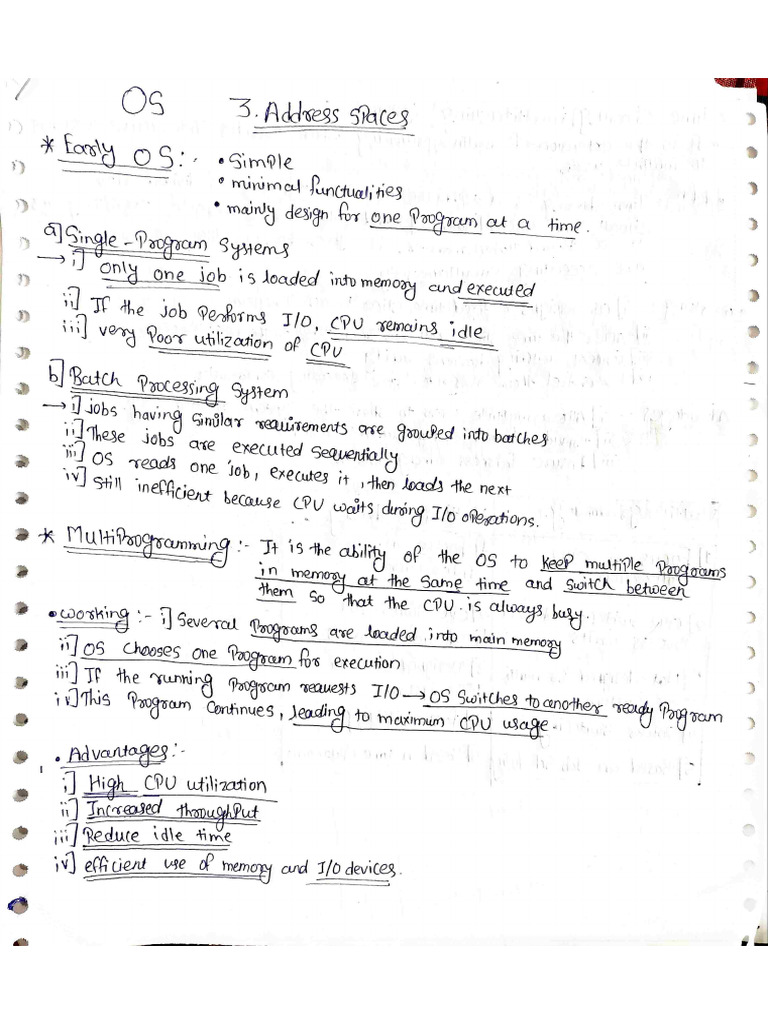 OS 3. Address spaces
* Early OS :- • Simple
• minimal functualities
• mainly design for one Program at a time.
a] Single-Program Systems
→ i] Only one job is loaded into memory and executed
ii] If the job performs I/O, CPU remains idle
iii] very Poor utilization of CPU
b] Batch Processing System
→ i] jobs having similar requirements are grouped into batches
ii] These jobs are executed sequentially
iii] OS reads one job, executes it, then loads the next
iv] Still inefficient because CPU waits during I/O operations.
* MultiProgramming :- It is the ability of the OS to keep multiple Programs
in memory at the same time and switch between
them so that the CPU is always busy.
• Working :- i] Several Programs are loaded into main memory
ii] OS chooses one Program for execution
iii] If the running Program requests I/O → OS switches to another ready Program
iv] This Program continues, leading to maximum CPU usage.
• Advantages :-
i] High CPU utilization
ii] Increased throughput
iii] Reduce idle time
iv] efficient use of memory and I/O devices.